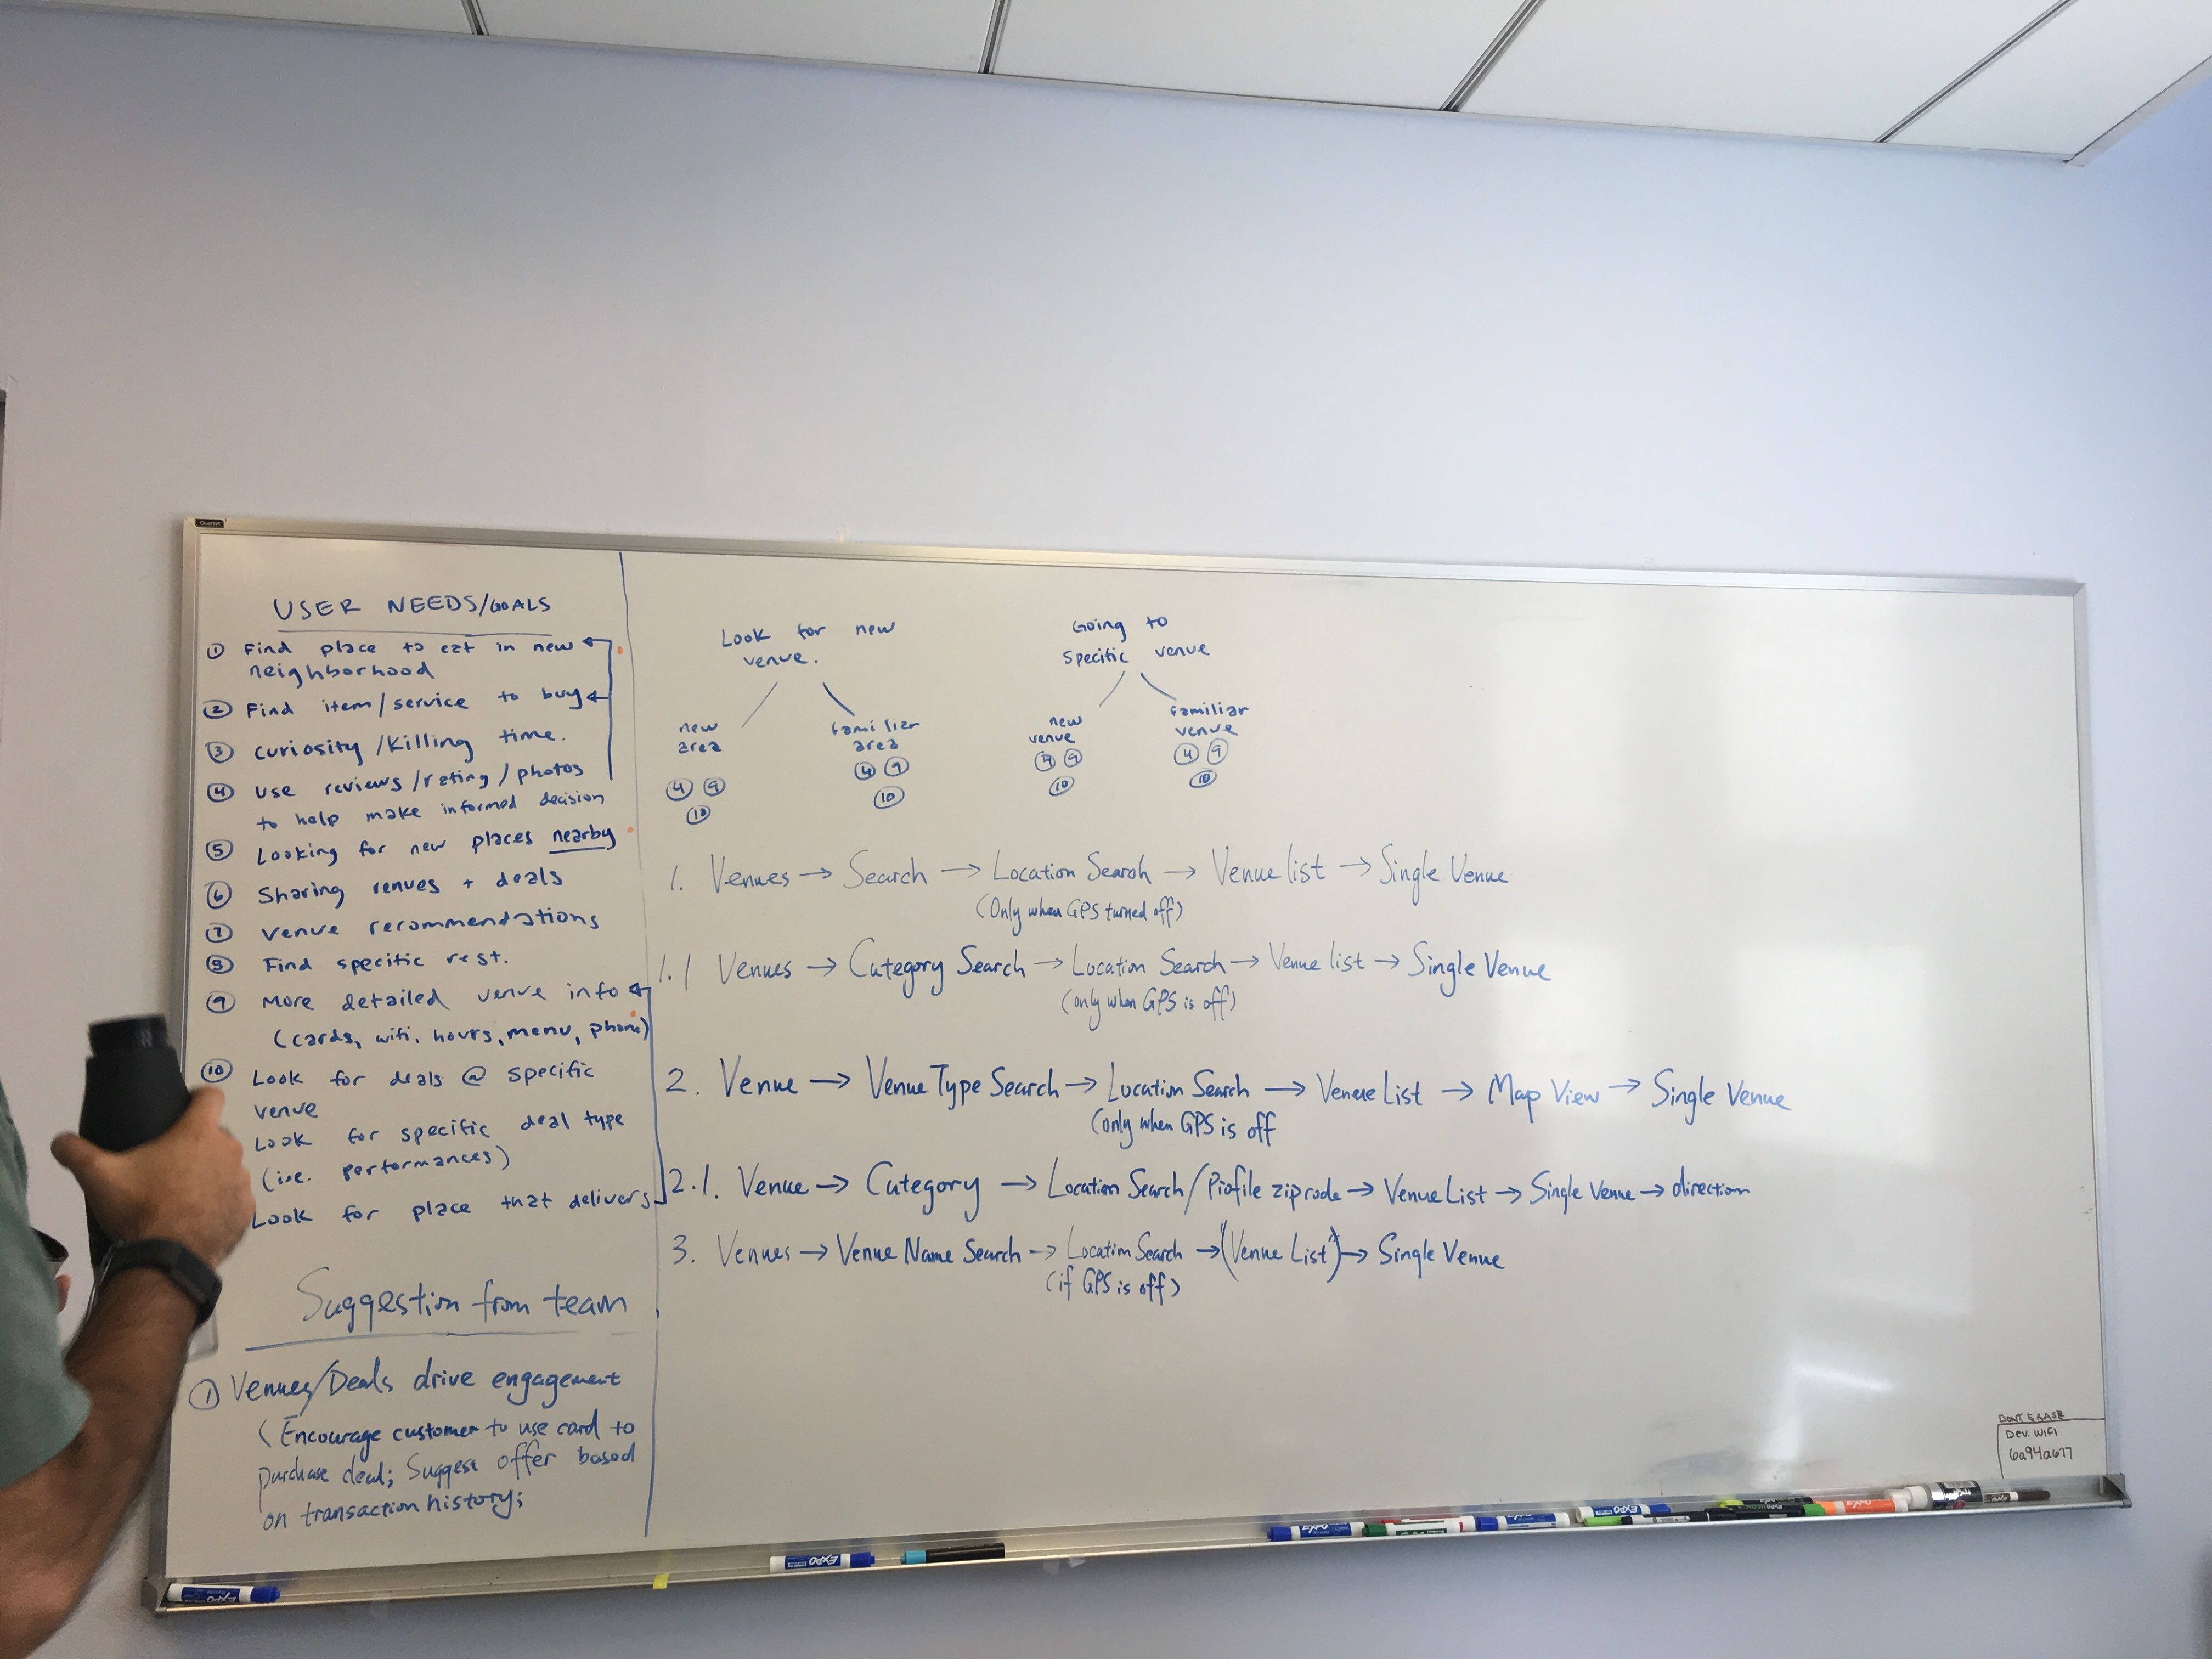 Quartet
USER NEEDS/GOALS
① Find place to eat in new
neighborhood
② Find item/service to buy
③ curiosity/killing time.
④ Use reviews/rating/photos
to help make informed decision
⑤ Looking for new places nearby
⑥ Sharing venues + deals
⑦ Venue recommendations
⑧ Find specific rest.
⑨ More detailed venue info
(cards, wifi, hours, menu, phone)
⑩ Look for deals @ specific
venue
Look for specific deal type
(i.e. performances)
Look for place that delivers
Suggestion from team
① Venues/Deals drive engagement
(Encourage customer to use card to
purchase deal; Suggest offer based
on transaction history;
Look for new
venue.
new
area
④ ⑨
⑩
familiar
area
④ ⑨
⑩
Going to
specific venue
new
venue
④ ⑨
⑩
familiar
venue
④ ⑨
⑩
1. Venues → Search → Location Search → Venue list → Single Venue
(Only when GPS turned off)
1.1 Venues → Category Search → Location Search → Venue list → Single Venue
(only when GPS is off)
2. Venue → Venue Type Search → Location Search → Venue List → Map View → Single Venue
(only when GPS is off
2.1. Venue → Category → Location Search/Profile zipcode → Venue List → Single Venue → direction
3. Venues → Venue Name Search → Location Search → ("Venue List") → Single Venue
(if GPS is off)
DONT ERASE
Dev. WiFi
6a94a677
EXPO
EXPO
EXPO
EXPO
EXPO